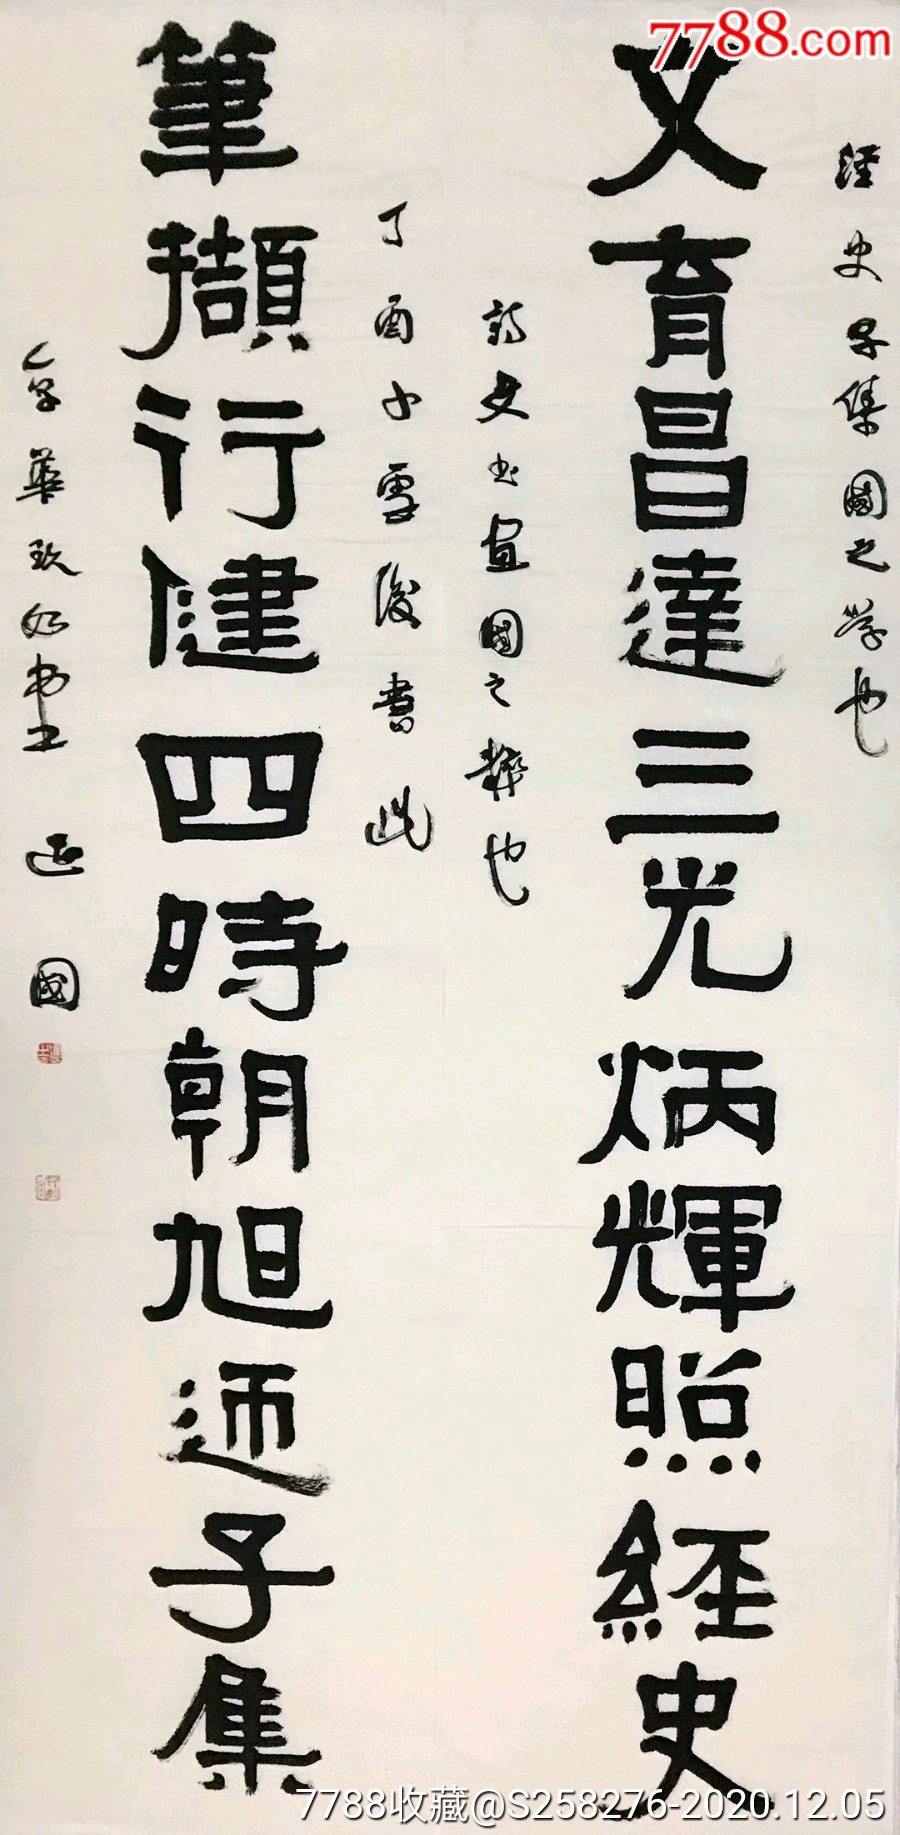 7788.com
經史子集國之学也
文育昌達三光炳輝照經史
詩文书画國之粹也
丁酉小雪後書此
筆擷行健四時朝旭迊子集
華玖如 國
7788收藏@S258276-2020.12.05